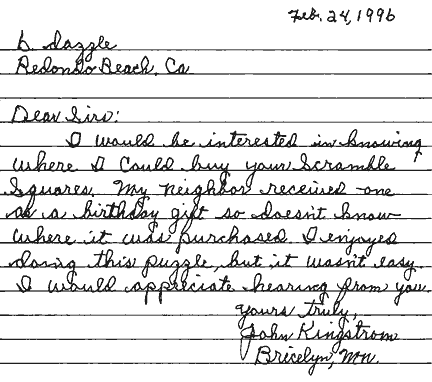 Feb. 24, 1996
b. dazzle
Redondo Beach, Ca
Dear Sirs:
I would be interested in knowing
where I could buy your Scramble
Squares. My neighbor received one
as a birthday gift so doesn't know
where it was purchased. I enjoyed
doing this puzzle, but it wasn't easy.
I would appreciate hearing from you.
Yours truly,
John Kingstrom
Bricelyn, Mn.